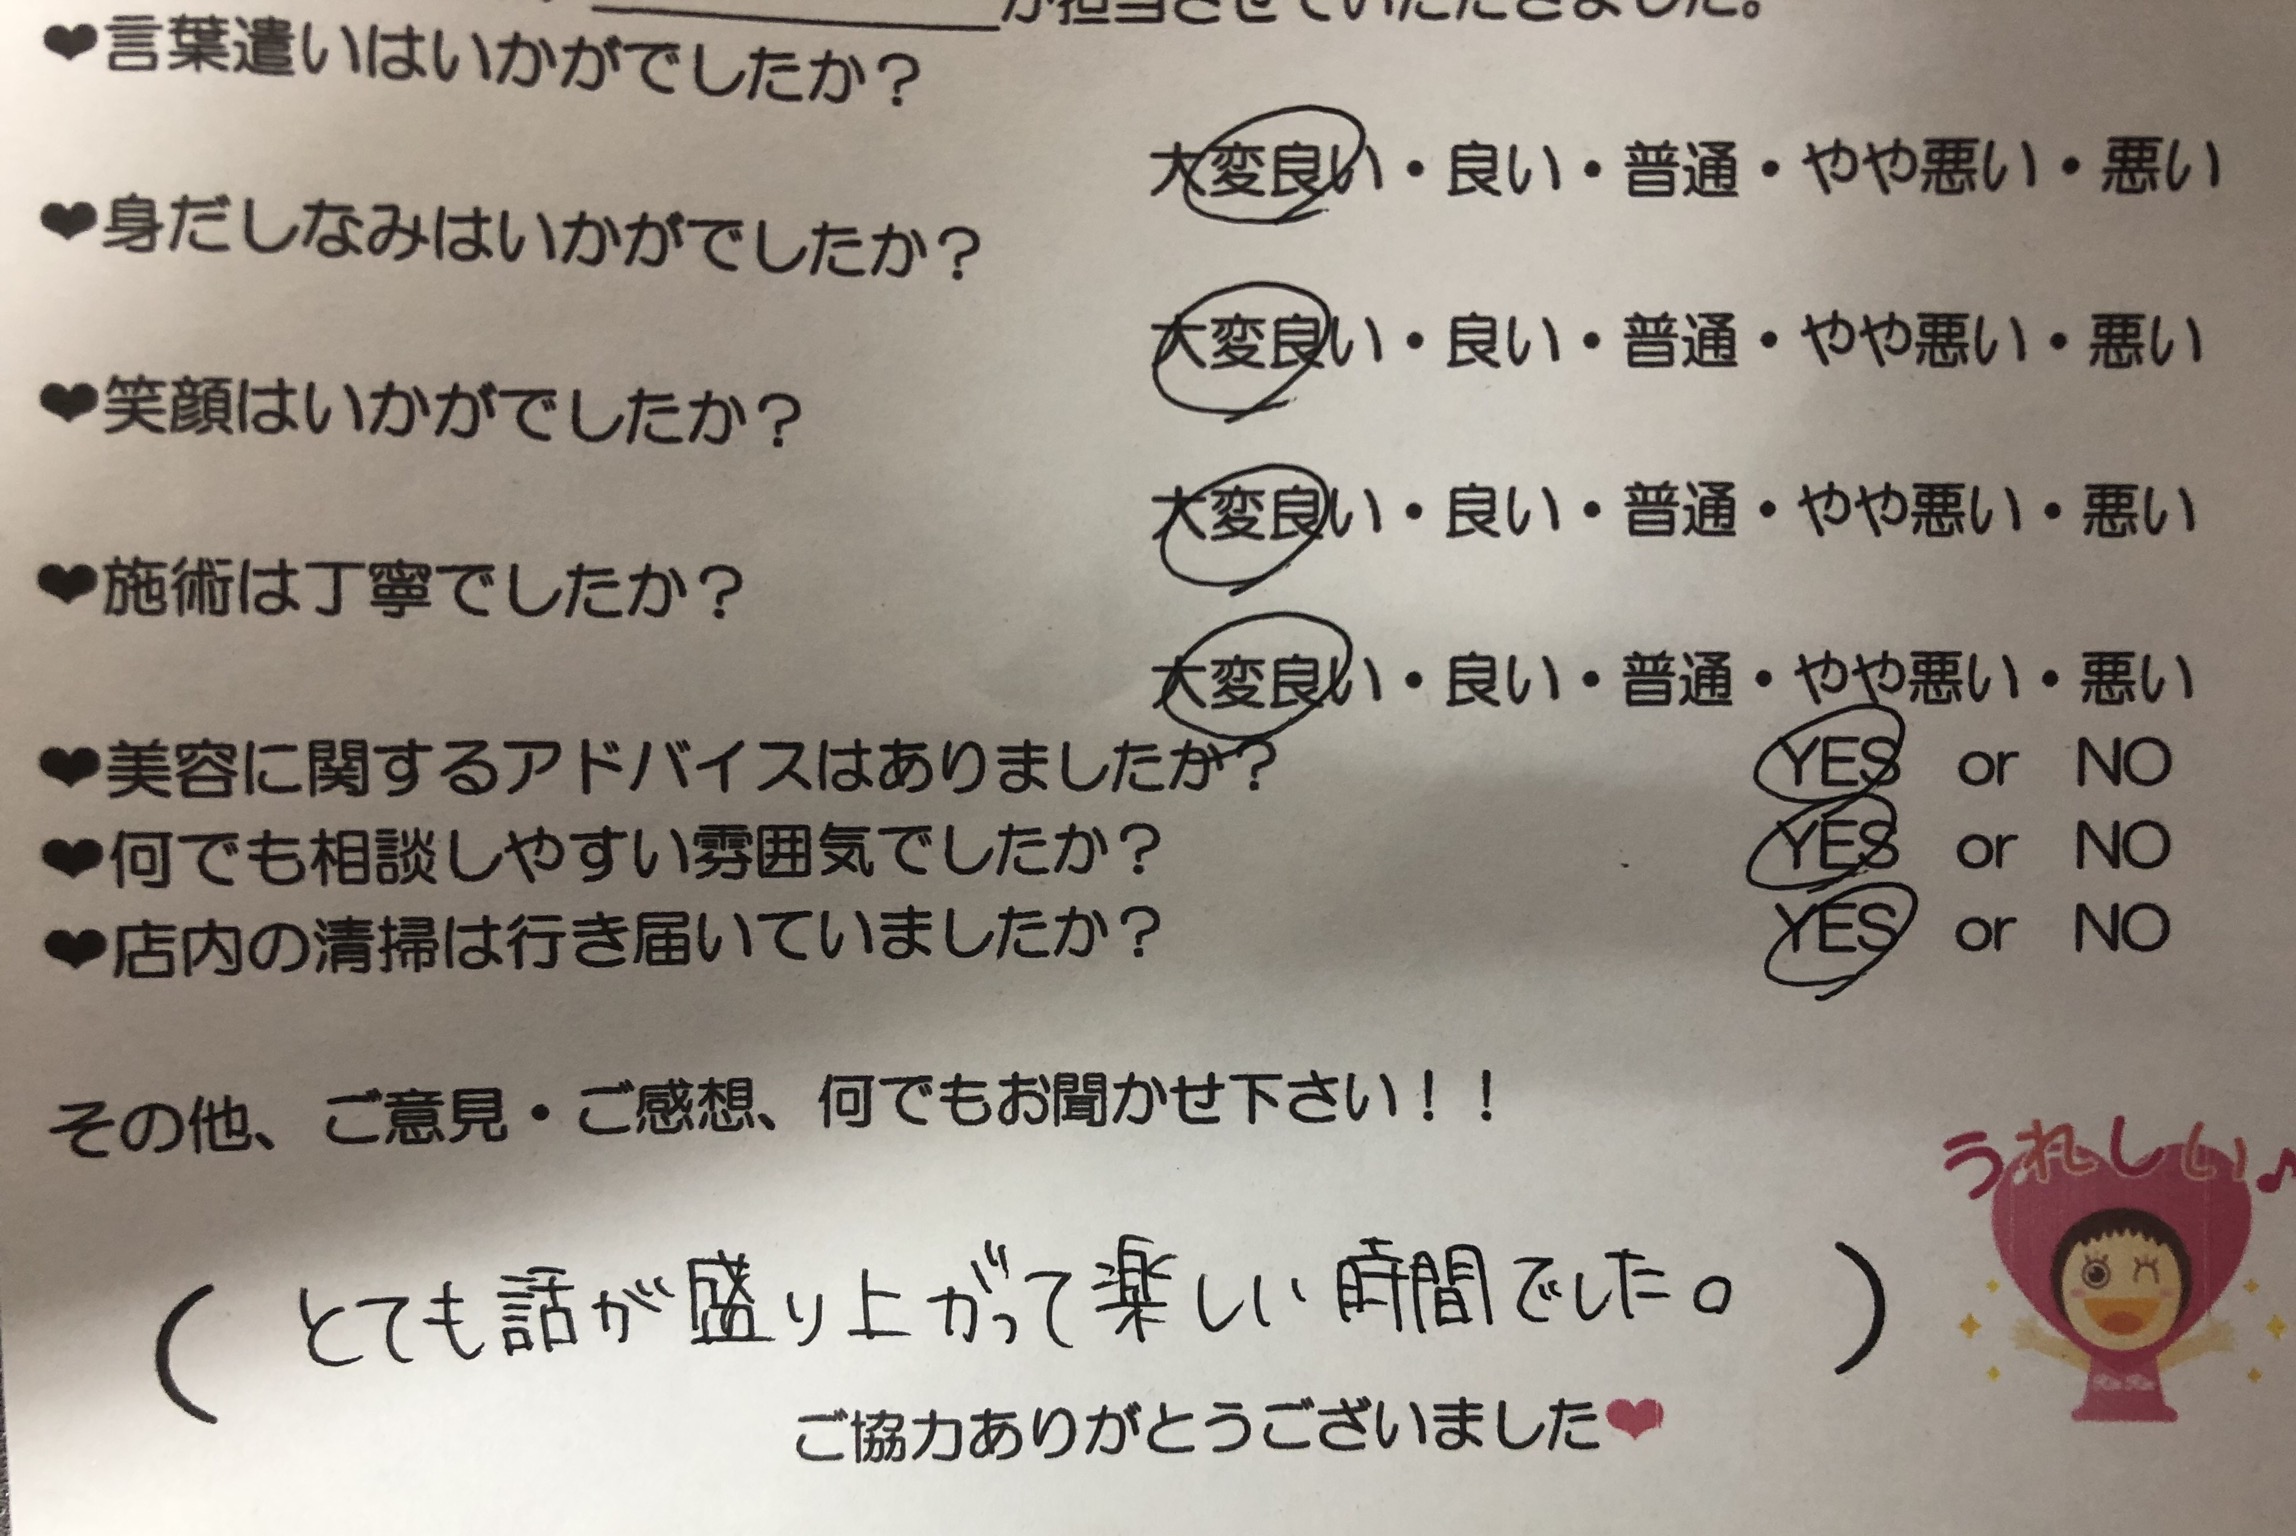 が担当させていただきました。
❤言葉遣いはいかがでしたか？
大変良い・良い・普通・やや悪い・悪い
❤身だしなみはいかがでしたか？
大変良い・良い・普通・やや悪い・悪い
❤笑顔はいかがでしたか？
大変良い・良い・普通・やや悪い・悪い
❤施術は丁寧でしたか？
大変良い・良い・普通・やや悪い・悪い
❤美容に関するアドバイスはありましたか？ YES or NO
❤何でも相談しやすい雰囲気でしたか？ YES or NO
❤店内の清掃は行き届いていましたか？ YES or NO
その他、ご意見・ご感想、何でもお聞かせ下さい！！
うれしい♪
（とても話が盛り上がって楽しい時間でした。）
ご協力ありがとうございました❤